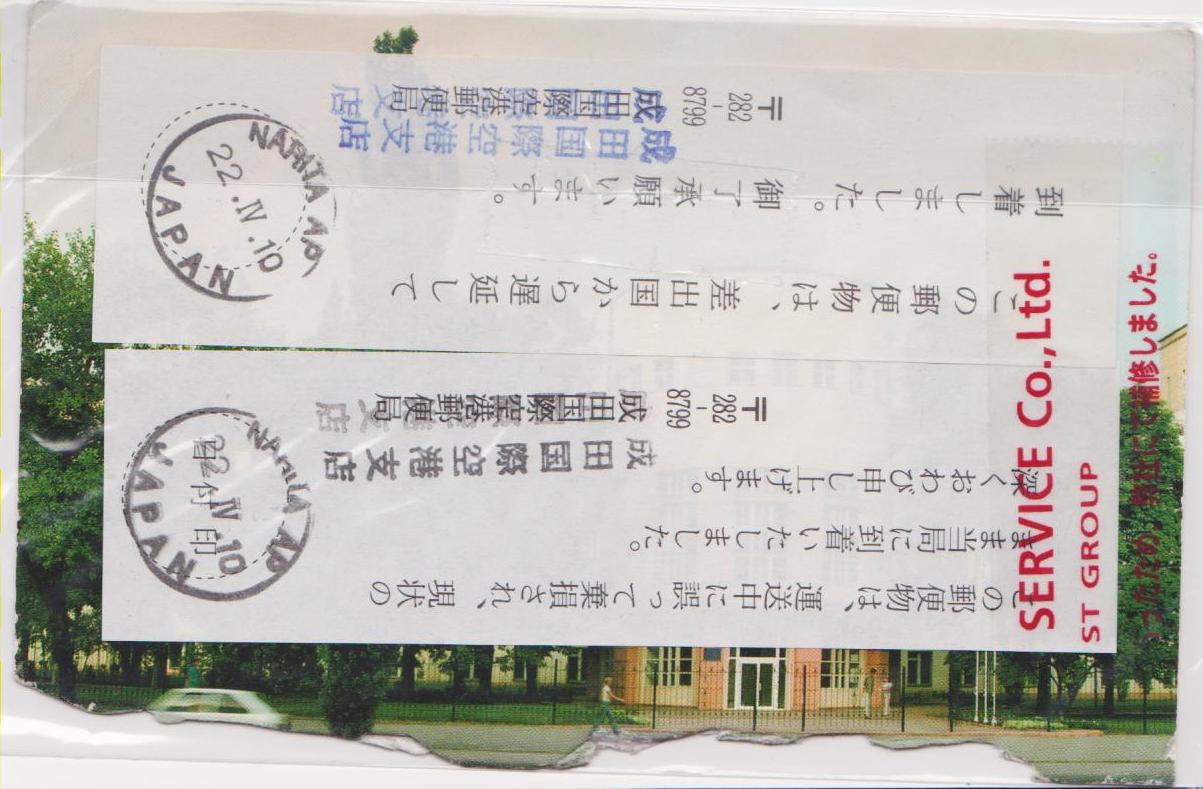 この郵便物は、運送中に誤って棄損され、現状の
まま当局に到着いたしました。
深くおわび申し上げます。
〒282-8799
成田国際空港支店
成田国際空港郵便局
支店
NARITA AP
22.IV.10
JAPAN
日付印
この郵便物は、差出国から遅延して
到着しました。御了承願います。
〒282-8799
成田国際空港支店
成田国際空港郵便局
支店
NARITA AP
22.IV.10
JAPAN
SERVICE Co.,Ltd.
ST GROUP
ったため、弊社にて補修しました。